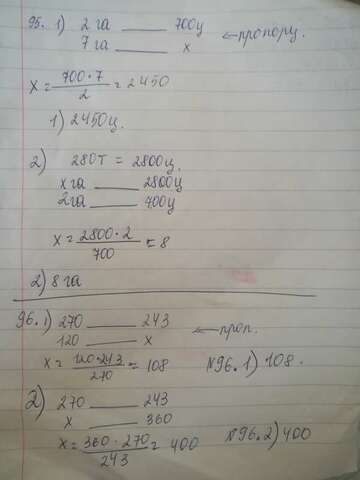 95. 1) 2 га ——— 700ц
7 га ——— х ← пропорц.
х = 700·7/2 = 2450
1) 2450ц.
2) 280т = 2800ц.
х га ——— 2800ц
2га ——— 700ц
х = 2800·2/700 = 8
2) 8 га
96. 1) 270 ——— 243
120 ——— х ← проп.
х = 120·243/270 = 108 №96. 1) 108.
2) 270 ——— 243
х ——— 360
х = 360·270/243 = 400 №96. 2) 400